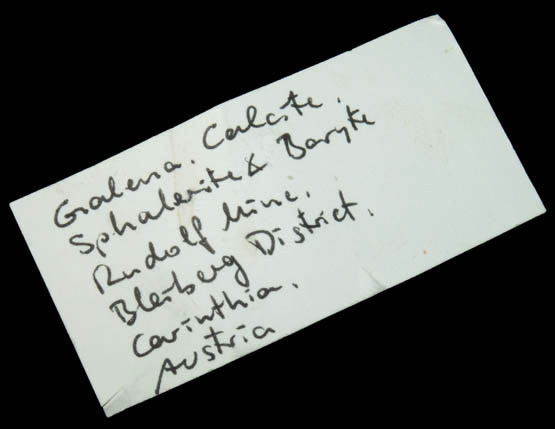 Galena. Calcite.
Sphalerite & Baryte
Rudolf Mine.
Bleiberg District.
Carinthia.
Austria